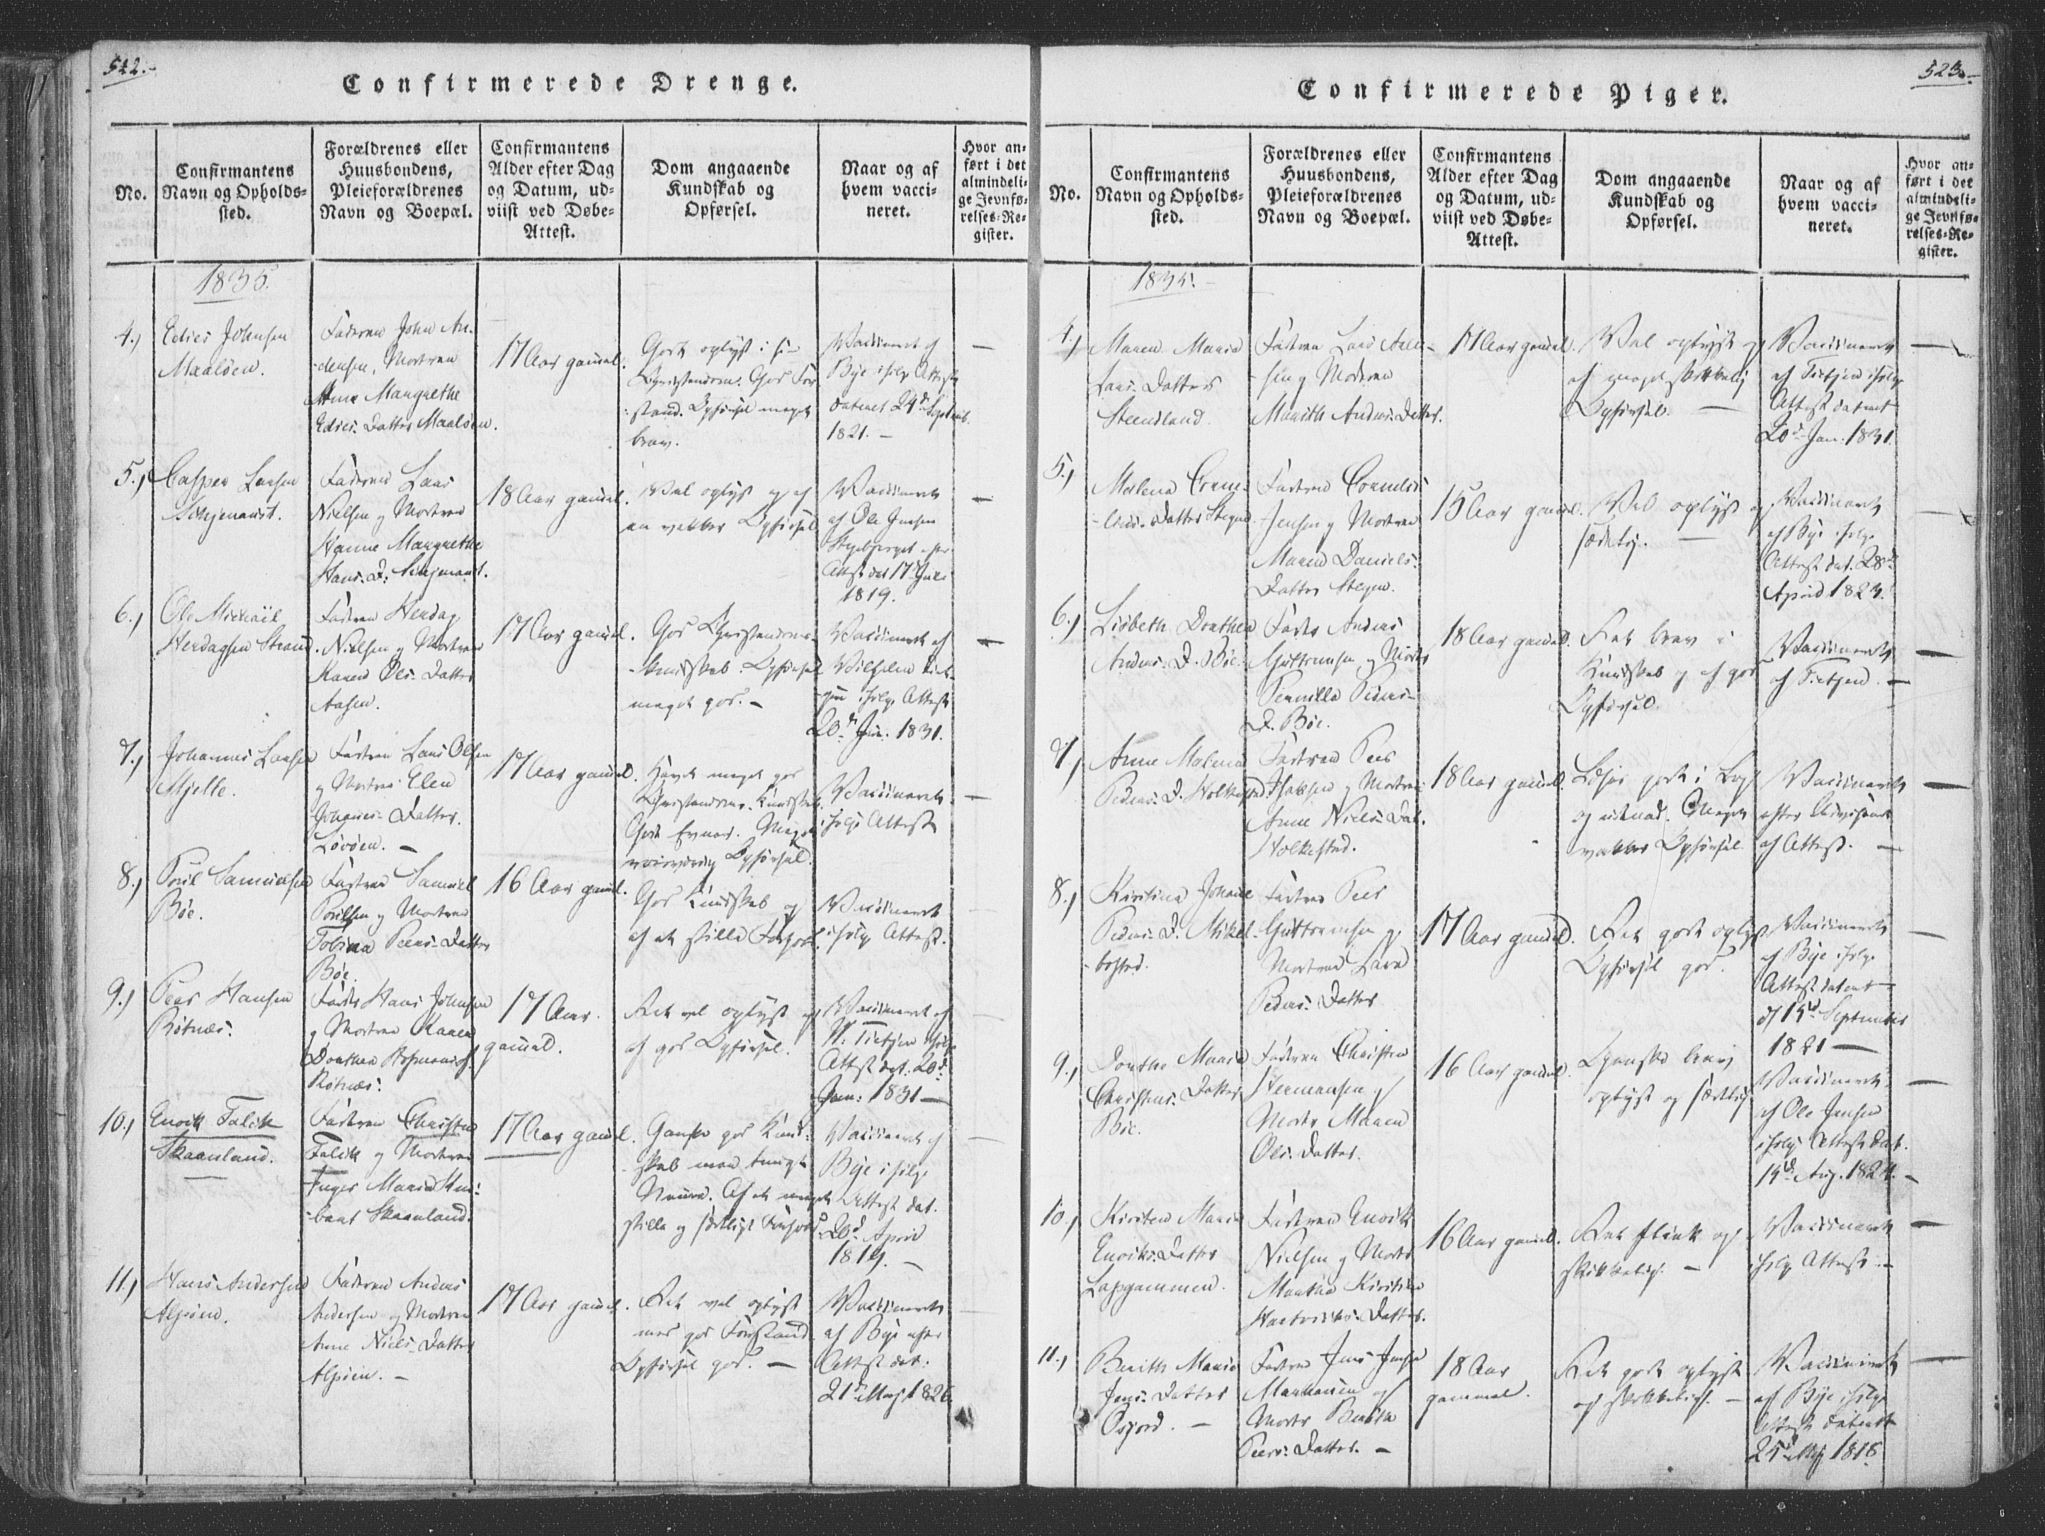 522.
Confirmerede Drenge.
No.
Confirmantens
Navn og Opholds-
sted.
Forældrenes eller
Huusbondens,
Pleieforældrenes
Navn og Boepæl.
Confirmantens
Alder efter Dag
og Datum, ud-
viist ved Døbe-
Attest.
Dom angaaende
Kundskab og
Opførsel.
Naar og af
hvem vacci-
neret.
Hvor an-
ført i det
almindeli-
ge Jevnfø-
relses-Re-
gister.
1835.
4.)
Edies Johnsen
Maalöen.
Faderen John An-
-densen, Moderen
Anne Margrethe
Edies: Datter Maalöen.
17 Aar gammel.
Godt oplyst i si-
Christendom. God For
-stand. Opførsel meget
brav.
Vaccineret af
Bye ifølge Attest
dateret 24d Septemb.
1821. –
5.)
Casper Larsen
Faderen Lars
Nielsen og Moderen
Hanne Margrethe
Hans: D:
18 Aar gammel.
Vel oplyst og af
en vakker Opførsel
Vaccineret
af Ole Jensen
Attest dat 17d Juni
1819.
6.)
Ole Michael
Herdagsen Strand.
Faderen Herdag
Nielsen og Moderen
Karen Ols: Datter
Aasen.
17 Aar gammel.
God Christendoms-
-kundskab. Opførsel
meget god. –
Vaccineret af
Wilhelm
ifølge Attest
20d Jan. 1831.
7.)
Johannes Larsen
Mjelle.
Faderen Lars Olsen
og Moderen Elen
Johannes: Datter.
Løvöen. –
17 Aar gammel.
Havde meget god
Christendoms-Kundskab.
Gode Evner. Meget
Opførsel.
Vaccineret
ifølge Attest
8.)
Poul Samuelsen
Böe.
Faderen Samuel
Poulsen og Moderen
Tobina Peers: Datter
Böe.
16 Aar gammel.
God Kundskab og
af et stille Forhold.
Vaccineret
ifølge Attest.
9.)
Peer Hansen
Rötnæs.
Fader Hans Johnsen
og Moderen Karen
Dorthea
Rötnæs:
17 Aar.
gammel.
Ret vel oplyst og
af god Opførsel.
Vaccineret af
H. Tietjen ifølge
Attest dat. 20d
Jan: 1831 –
10.)
Enoch Falch
Skaanland.
Faderen Christen
Falch og Moderen
Inger Maria
Skaanland.
17 Aar gammel.
Ganske god Kund-
-skab med
Af et meget
stille og sædeligt Forhold
Vaccineret af
Bye ifølge
Attest dat.
20d April
1819. –
11.)
Hans Andersen
Alpöen.
Faderen Anders
Andersen og Moderen
Anne Niels: Datter
Alpöen. –
17 Aar gammel.
Ret vel oplyst
med god Forstand.
Opførsel god. –
Vaccineret
af Bye efter
Attest dat:
21d May 1826
523.
Confirmerede Piger.
No.
Confirmantens
Navn og Opholds-
sted.
Forældrenes eller
Huusbondens,
Pleieforældrenes
Navn og Boepæl.
Confirmantens
Alder efter Dag
og Datum, ud-
viist ved Døbe-
Attest.
Dom angaaende
Kundskab og
Opførsel.
Naar og af
hvem vacci-
neret.
Hvor an-
ført i det
almindeli-
ge Jevnfø-
relses-Re-
gister.
1835.
4.)
Maren Maria
Lars: Datter
Steensland.
Faderen Lars
og Moderen
Marith Anders: Datter.
17 Aar gammel.
Vel oplyst og
af meget skikkelig
Opførsel. –
Vaccineret
af Tietjen ifølge
Attest dateret
20d Jan. 1831.
5.)
Malena Corne-
-lius: Datter Stegen
Faderen Cornelius
Jensen og Moderen
Maren Daniels:
Datter Stegen.
15 Aar gammel.
Vel oplyst og
sædelig. –
Vaccineret
af Bye ifølge
Attest dat. 28d
April 1823.
6.)
Lisbeth Dorthea
Anders: D. Böe.
Fader Anders
Guttormsen og Moder
Pernilla Peders-
D. Böe.
18 Aar gammel.
Ret brav i
Kundskab og af god
Opførsel.
Vaccineret
af Tietjen. –
7.)
Anne Malena
Peders: D. Holkestad.
Faderen Peer
og Moderen
Anne Niels: Dat.
Holkestad.
18 Aar gammel.
Læser godt i Bog
og udenad. Meget
vakker Opførsel.
Vaccineret
efter
af Attest. –
8.)
Kirstina Johanna
Peders: D. Mikel-
-bostad.
Faderen Peer
Guttormsen og
Moderen Lava
Peders: Datter
17 Aar gammel.
Ret godt oplyst
Opførsel god.
Vaccineret
af Bye ifølge
Attest dateret
September
1821 –
9.)
Dorthe Maria
Christens: Datter
Böe.
Faderen Christen
Hermansen og
Moder Maren
Ols: Datter.
16 Aar gammel.
Ganske brav
oplyst og sædelig
Vaccineret
af Ole Jensen
ifølge Attest dat.
Aug. 1824. –
10.)
Kirsten Maria
Enochs: Datter
Lapgammen.
Faderen Enoch
Nielsen og Moder
Martha Kirstine
Hartviks: Datter.
16 Aar gammel.
Ret flink og
skikkelig. –
Vaccineret
ifølge Attest. –
11.)
Berith Maria
Jens: Datter
–
Faderen Jens Jensen
og
Moder Berith
Peers: Datter. –
18 Aar
gammel.
Ret godt oplyst
og skikkelig. –
Vaccineret
af Bye ifølge
Attest dateret
25d May 1818.